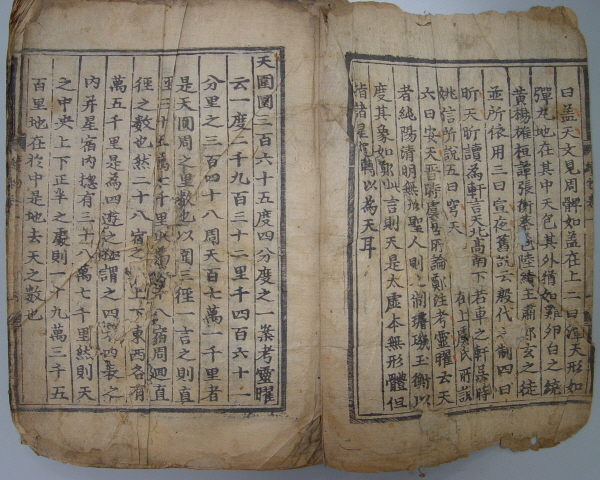 曰蓋天文見周髀如蓋在上二曰渾天形如
彈丸地在其中天包其外猶如雞卵白之繞
黃楊雄桓譚張衡蔡邕陸績王肅鄭玄之徒
並所依用三曰宣夜舊說云殷代制四曰
昕天昕讀為軒言天北高南下若車之軒是時
姚信所說五曰穹天在上虞氏所說
六曰安天晉時虞喜所論鄭注考靈曜云天
者純陽清明無形聖人則制璿璣玉衡以
度其象如鄭此言則天是太虛本無形體但
指諸星轉以為天耳
天圓圍三百六十五度四分度之一案考靈曜
云一度二千九百三十二里千四百六十一
分里之三百四十八周天百七萬一千里者
是天圓周之里數也以圍三徑一言之則直
徑三十五萬七千里八宿周迴直
徑之數也然二十八宿之上下東西各有
萬五千里是為四遊之極謂之四表之
內并星宿內摠有三十八萬七千里然則天
之中央上下正半之處則一十九萬三千五
百里地在於中是地去天之數也